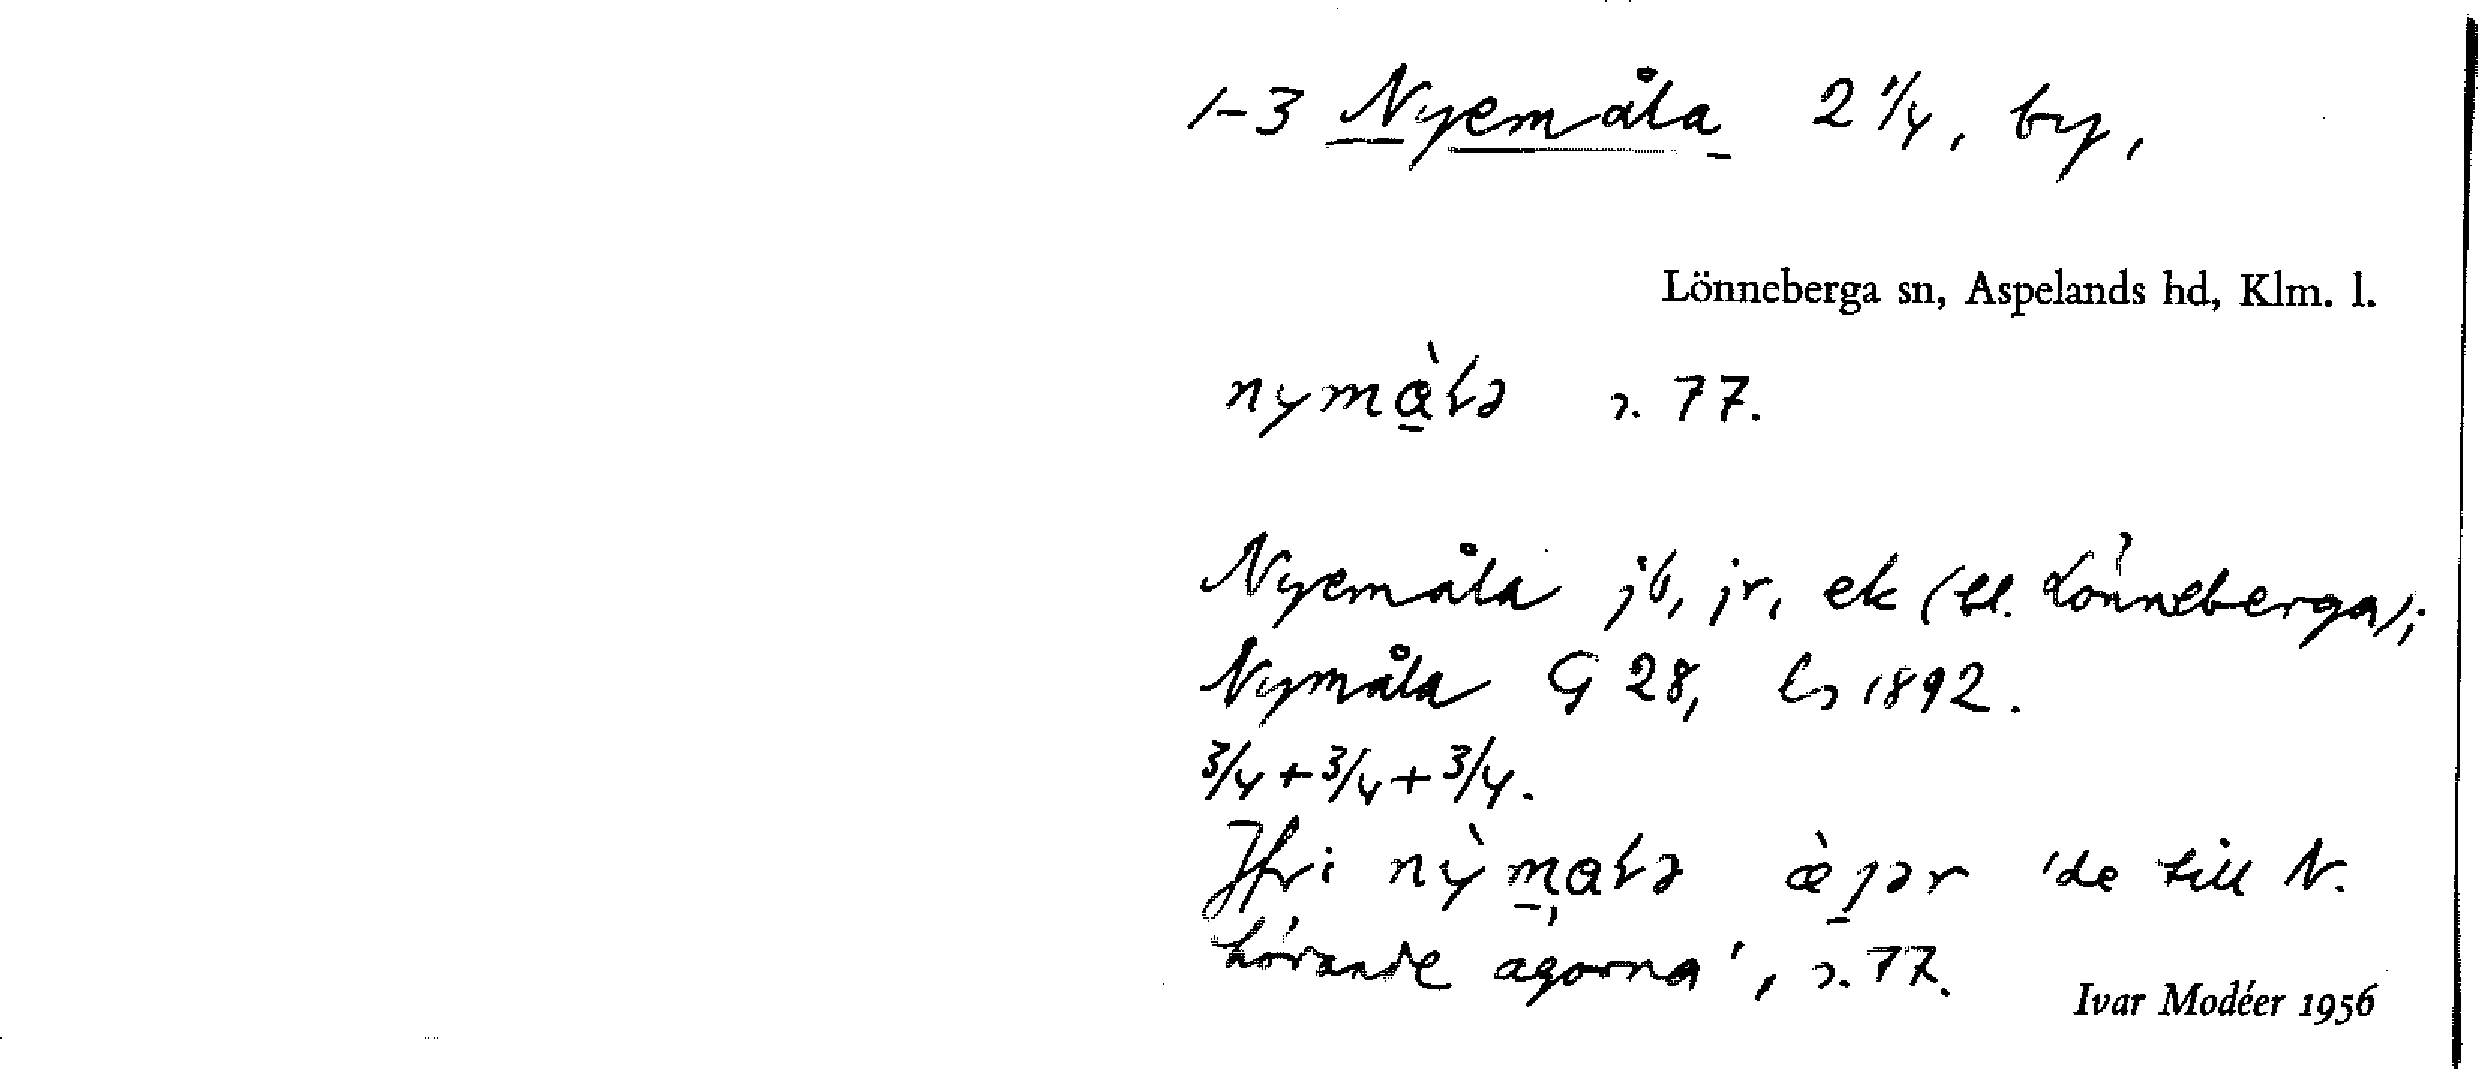 1-3 Nyemåla 2 1/4, by,
Lönneberga sn, Aspelands hd, Klm. l.
s. 77.
Nyemåla jb, jr, ek (bl. Lönneberga);
Nymåla G 28, Ls 1892.
3/4 + 3/4 + 3/4.
Jfr: 'de till N.
hörande ägorna', s. 77.
Ivar Modéer 1956